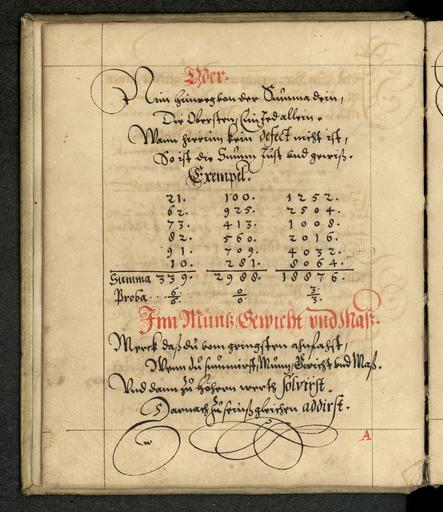 Oder.
Nim hinweg von der Summa dein,
Die Obersten Linj allein.
Wann hierinn kein defect nicht ist,
So ist die Summ Just und gewiß.
Exempel.
21. 100. 1252.
62. 925. 2504.
73. 413. 1008.
82. 560. 2016.
91. 709. 4032.
10. 281. 8064.
Summa 339. 2988. 18876.
Proba. 6/6. 0/0. 3/3.
Inn Müntz, Gewicht und Maß.
Merck daß du vom gringsten anfahst,
Wenn du summirst Müntz, Gwicht und Maß.
Und dann zu höhern werth solvirst.
Darnach zu seins gleichen addirst.
A